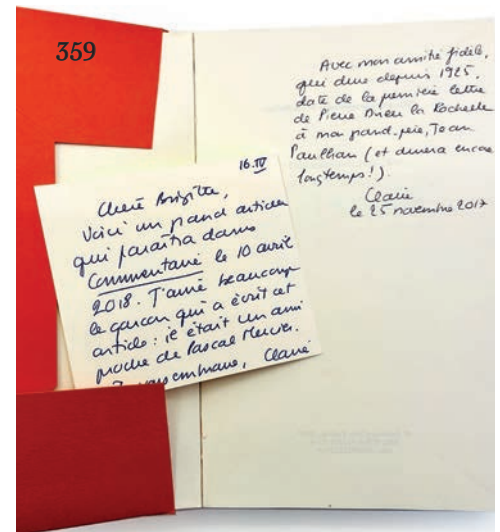 359
Avec mon amitié fidèle,
qui dure depuis 1925,
date de la première lettre
de Pierre Drieu la Rochelle
à mon grand-père, Jean
Paulhan (et durera encore
longtemps !).
Claire
le 25 novembre 2017
16.IV
Chère Brigitte,
Voici un grand article
qui paraîtra dans
Commentaire le 10 avril
2018. J'aime beaucoup
le garçon qui a écrit cet
article : il était un ami
proche de Pascal Mercier.
Je vous embrasse, Claire